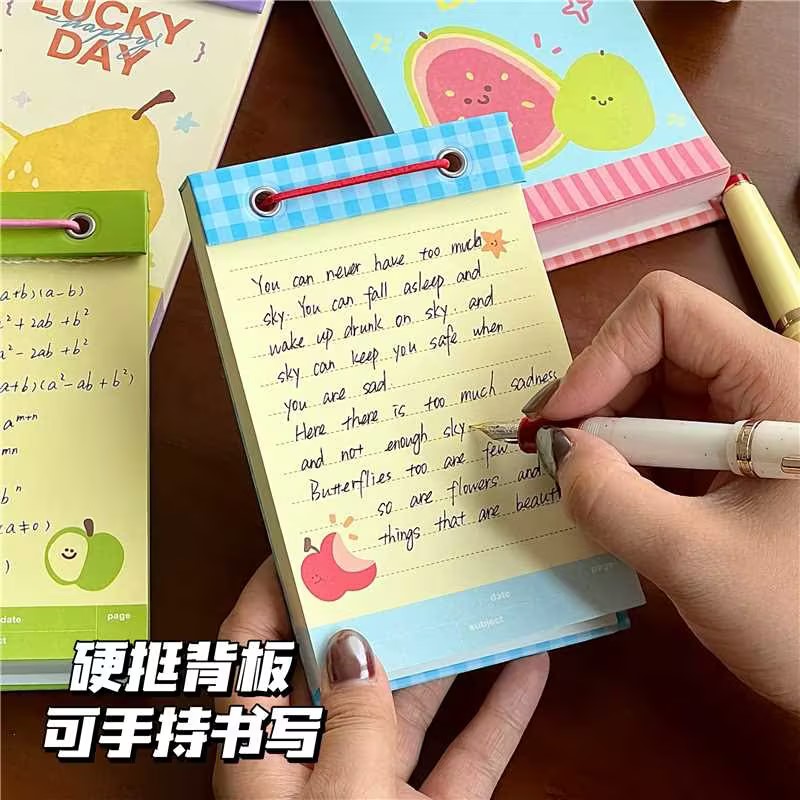 LUCKY
happy!
DAY
a+b)(a-b)
² + 2ab + b²
² - 2ab + b²
a+b)(a²-ab+b²)
a^m+n
mn
b^n
(a≠0)
)
date
page
You can never have too much
sky. You can fall asleep and
wake up drunk on sky. and
sky can keep you safe when
you are sad.
Here there is too much sadness
and not enough sky.
Butterflies too are few
so are flowers and
things that are beaut
date
page
subject
硬挺背板
可手持书写